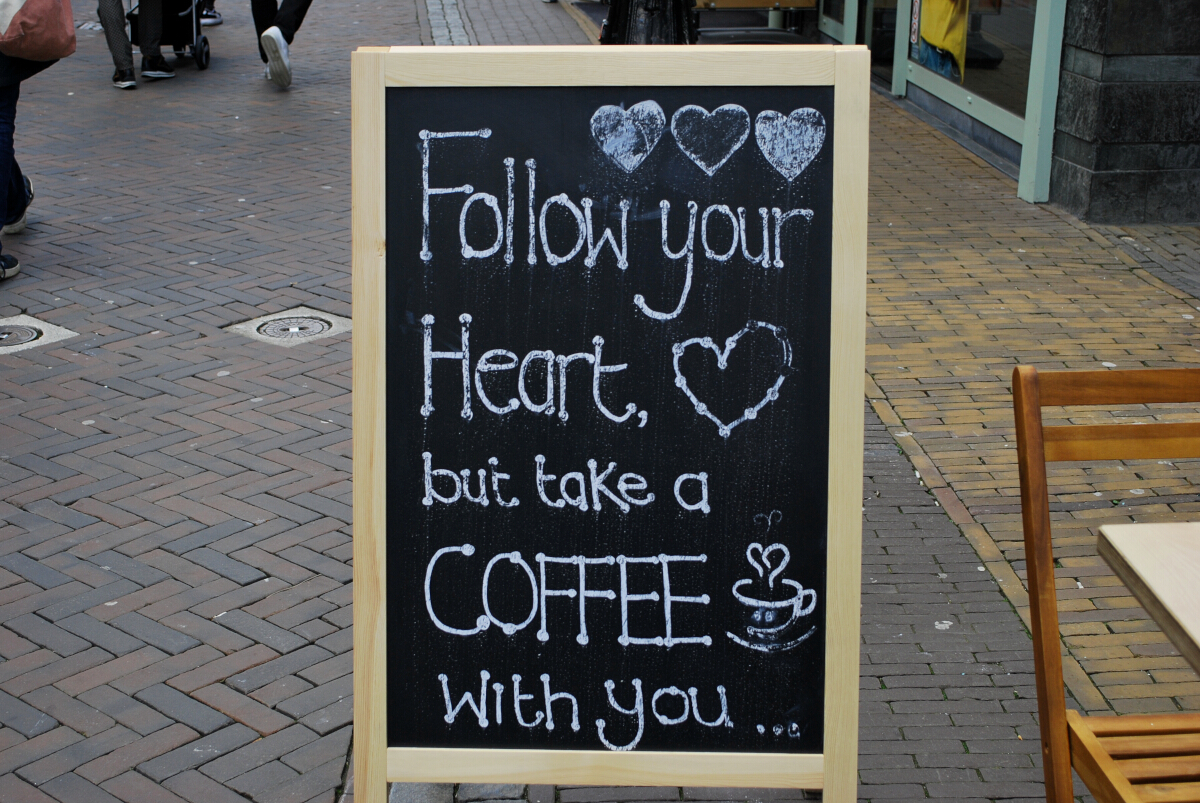 Follow your
Heart,
but take a
COFFEE
with you...